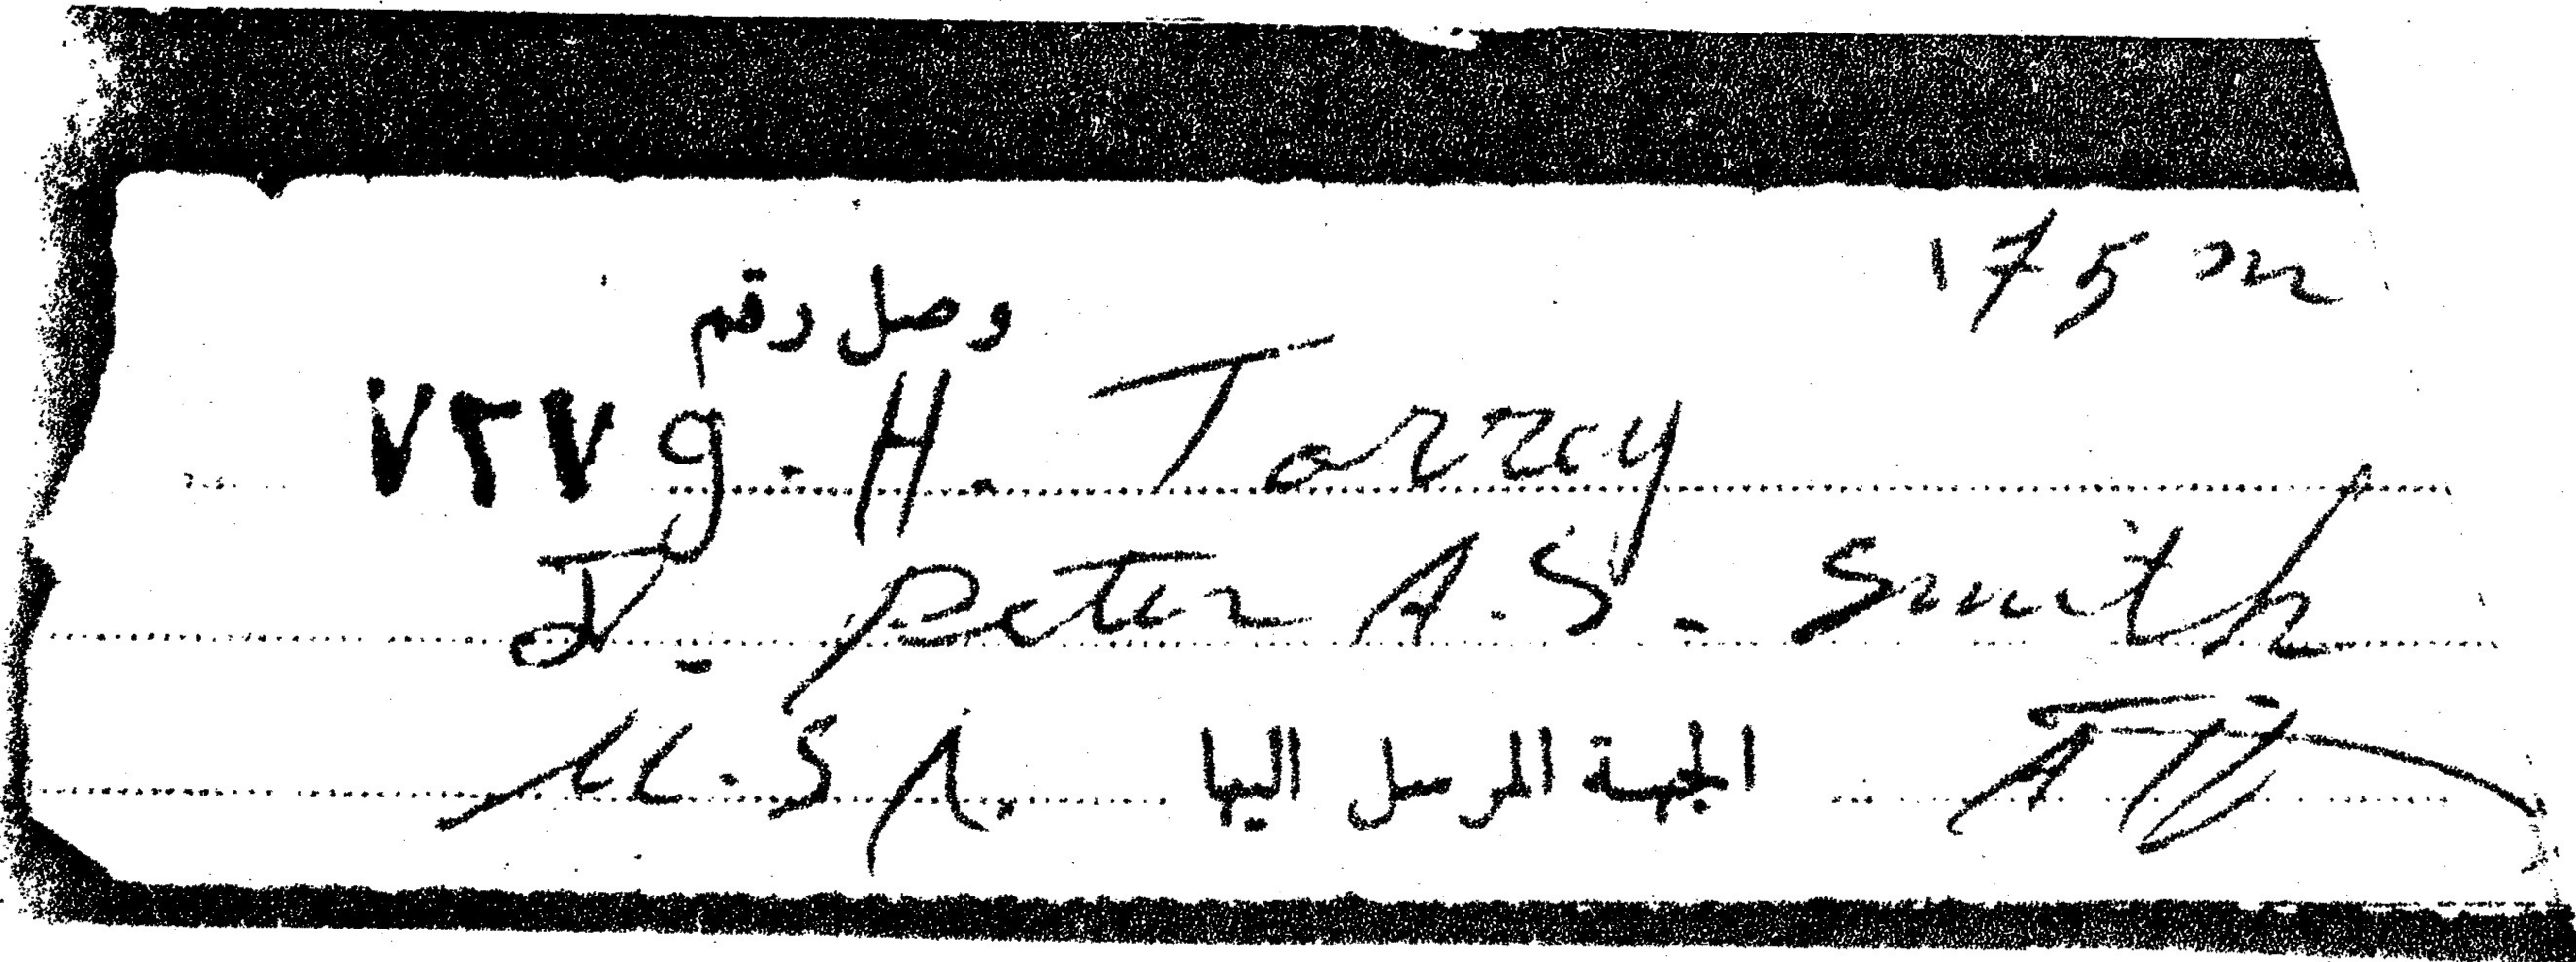 175 m
وصل رقم
٧٢٧ g. H. Torrey
J. Peter A. S. Smith
U. S A. الجهة المرسل اليها